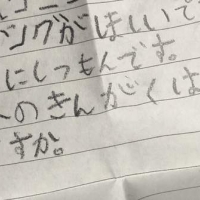 ングがほしいで
にしつもんです。
のきんがくは
すか。